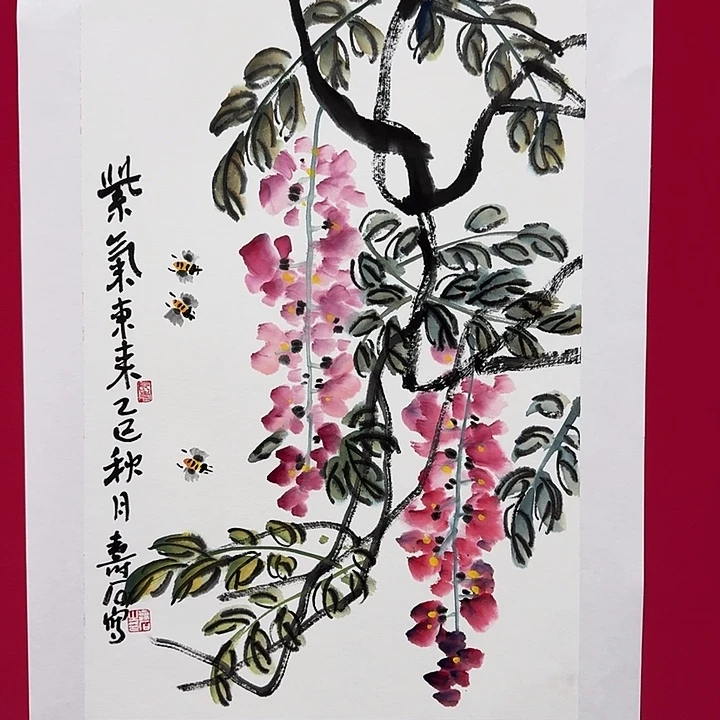 紫氣東来乙巳秋月壽石寫